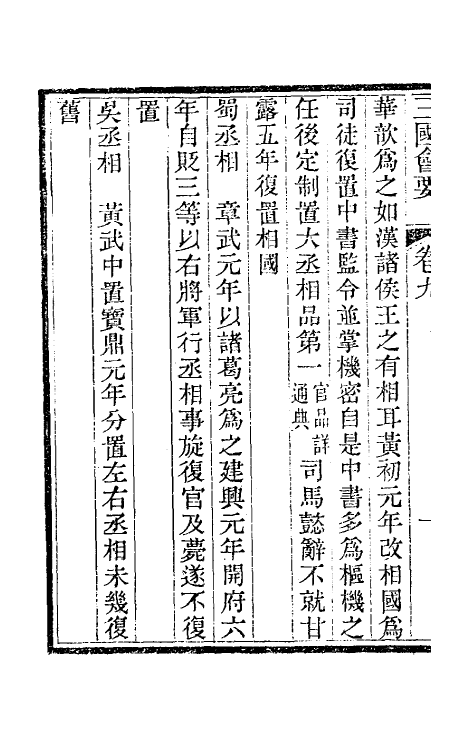 三國會要 卷九 一
華歆為之如漢諸侯王之有相耳黃初元年改相國為
司徒復置中書監令並掌機密自是中書多為樞機之
任後定制置大丞相品第一官品詳通典司馬懿辭不就甘
露五年復置相國
蜀丞相 章武元年以諸葛亮為之建興元年開府六
年自貶三等以右將軍行丞相事旋復官及薨遂不復
置
吳丞相 黃武中置寶鼎元年分置左右丞相未幾復
舊